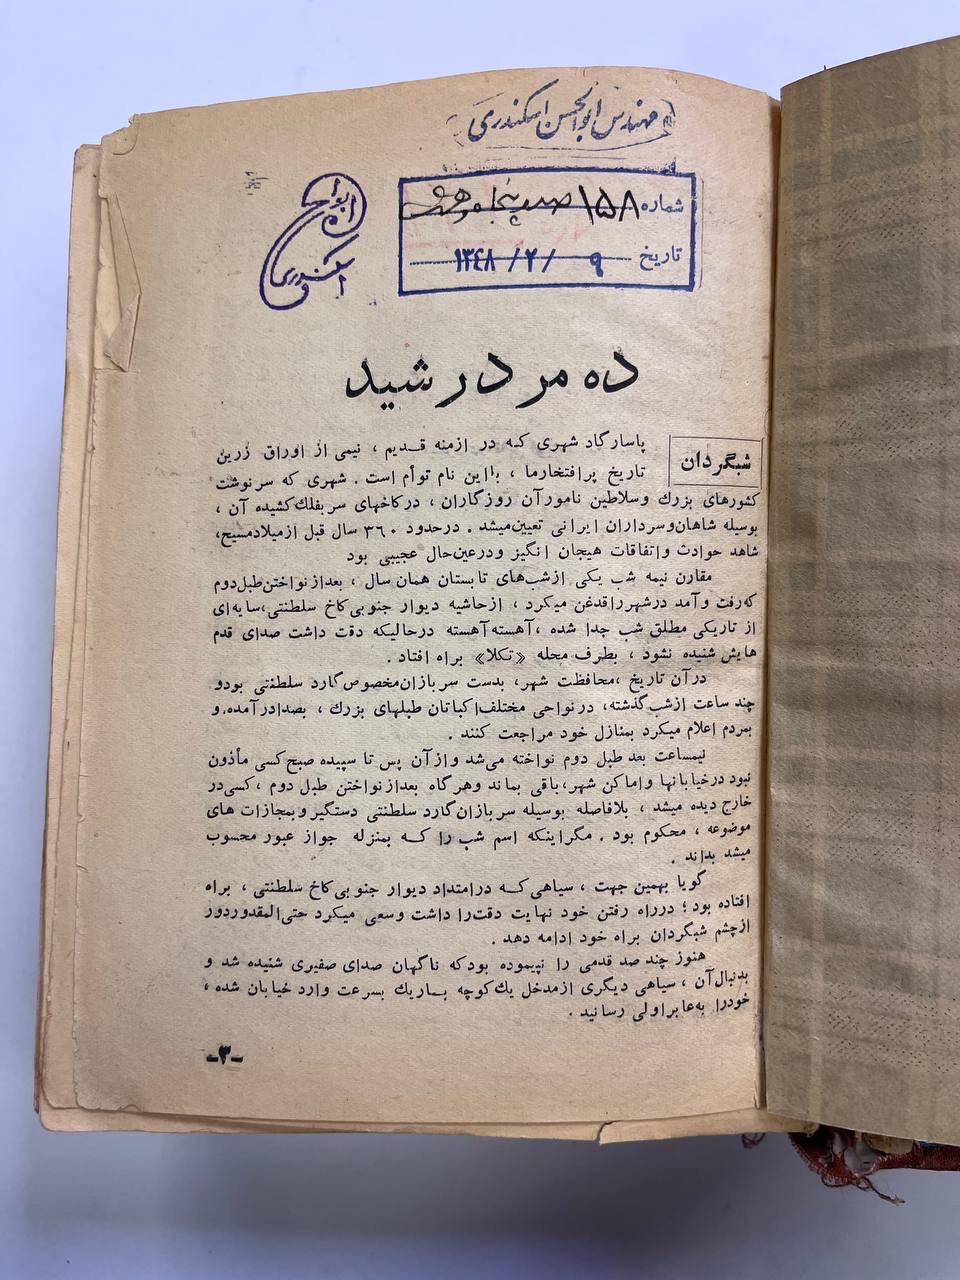 مهندس ابوالحسن اسکندری
شماره ۱۵۸ صد و پنجاه و هشت
تاریخ ۹ /۲/ ۱۳۴۸
ابوالحسن
اسکندری
ده مرد رشید
شبگردان
پاسارگاد شهری که در ازمنه قدیم ، نیمی از اوراق زرین
تاریخ پرافتخارما ، بااین نام توأم است . شهری که سرنوشت
کشورهای بزرك وسلاطین نامورآن روزگاران ، درکاخهای سربفلك‌کشیده آن ،
بوسیله شاهان‌وسرداران ایرانی تعیین‌میشد . درحدود ۳۶۰ سال قبل ازمیلادمسیح،
شاهد حوادث واتفاقات هیجان انگیز ودرعین‌حال عجیبی بود
مقارن نیمه شب یکی ازشب‌های تابستان همان سال ، بعداز نواختن‌طبل‌دوم
که‌رفت وآمد درشهرراقدغن میکرد ، ازحاشیه دیوار جنوبی‌کاخ سلطنتی،سایه‌ای
از تاریکی مطلق شب جدا شده ،آهسته‌آهسته درحالیکه دقت داشت صدای قدم
هایش شنیده نشود ، بطرف محله «تکلا» براه افتاد .
درآن تاریخ ،محافظت شهر، بدست سربازان‌مخصوص‌گارد سلطنتی بودو
چند ساعت ازشب‌گذشته، درنواحی مختلف‌اکباتان طبلهای بزرك ، بصدادرآمده‌و
بمردم اعلام میکرد بمنازل خود مراجعت کنند .
نیمساعت بعد طبل دوم نواخته می‌شد وازآن پس تا سپیده صبح‌کسی مأذون
نبود درخیابانها واماکن شهر،باقی بماند وهرگاه بعدازنواختن طبل دوم ،کسی‌در
خارج دیده میشد ، بلافاصله بوسیله سربازان‌گارد سلطنتی دستگیر وبمجازات های
موضوعه ، محکوم بود . مگراینکه اسم شب را که بمنزله جواز عبور محسوب
میشد بداند .
گویا بهمین جهت ، سیاهی‌که درامتداد دیوار جنوبی‌کاخ سلطنتی ، براه
افتاده بود؛ درراه رفتن خود نهایت دقت‌را داشت وسعی میکرد حتی‌المقدوردور
ازچشم شبگردان براه خود ادامه دهد .
هنوز چند صد قدمی را نپیموده بودکه ناگهان صدای صفیری شنیده شد و
بدنبال‌آن ، سیاهی دیگری ازمدخل یك‌کوچه باریك بسرعت وارد خیابان شده ،
خودرا به‌عابراولی رسانید .
-۳-